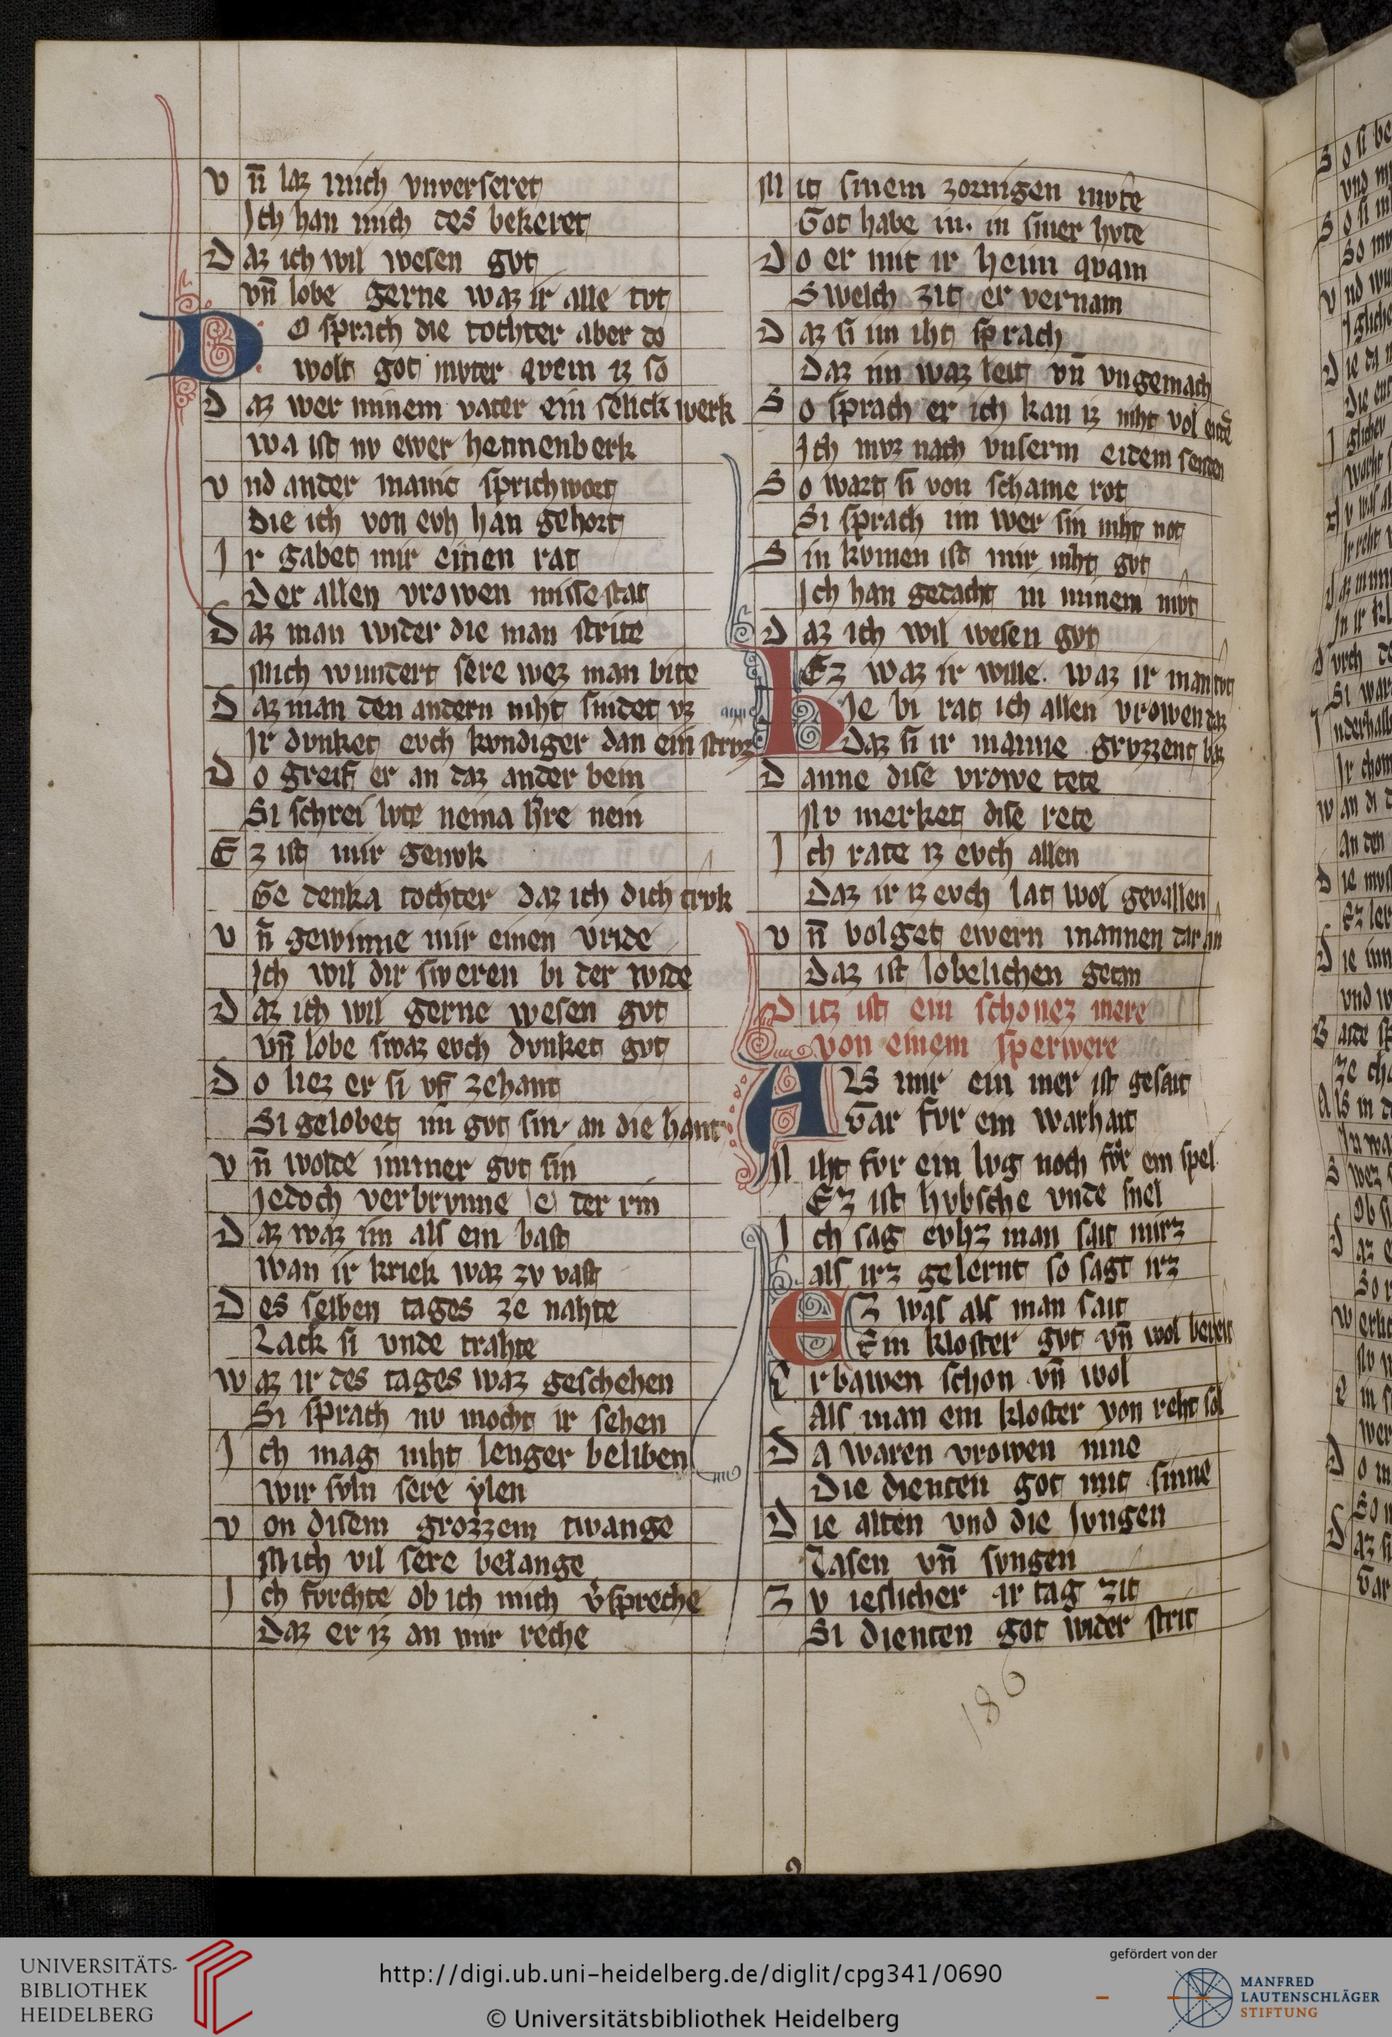 vn̄ laz mich vnverseret
Ich han mich des bekeret
Daz ich wil wesen gvt
vn̄ lobe gerne waz ir alle tvt
Do sprach die tochter aber do
wolt got mvter qvem iz so
Daz wer minem vater ein selick werk
wa ist nv ewer hennenberk
vnd ander manic sprichwort
die ich von evh han gehort
Ir gabet mir einen rat
Der allen vrowen missestat
Daz man wider die man strite
Mich wundert sere wez man bite
Daz man den andern niht sindet vz
Ir dvnket evch kvndiger dan ein strvz
Do greif er an daz ander bein
Si schrei lvte neina h̾re nein
Ez ist mir genvk
Ge denka tochter daz ich dich trvk
vn̄ gewinne mir einen vride
Ich wil dir sweren bi der wide
Daz ich wil gerne wesen gvt
vn̄ lobe swaz evch dvnket gvt
Do liez er si vf zehant
Si gelobet im gvt sin an die hant
vn̄ wolde immer gvt sin
Iedoch verbrvnne e der rin
Daz waz im als ein bast
wan ir kriek waz zv vast
Des selben tages ze nahte
Lack si vnde trahte
waz ir des tages waz geschehen
Si sprach nv mocht ir sehen
Ich mag niht lenger beliben
wir svln sere ylen
von disem grozzem twange
Mich vil sere belange
Ich fvrchte ob ich mich v̾spreche
Daz er iz an mir reche
Mit sinem zornigen mvte
Got habe in in siner hvte
Do er mit ir heim qvam
Swelch zit er vernam
Daz si im iht sprach
Daz im waz leit vn̄ vngemach
So sprach er ich kan iz niht vol endē
Ich mvz nach vnserm eidem senden
So wart si von schame rot
Si sprach im wer sin niht not
Sin kvmen ist mir niht gvt
Ich han gedacht in minem mvt
Daz ich wil wesen gvt
Ez waz ir wille waz ir man tvt
Hie bi rat ich allen vrowen daz
Daz si ir manne grvzzent baz
Danne dise vrowe tete
Nv merket dise rete
Ich rate iz evch allen
Daz ir iz evch lat wol gevallen
vn̄ volget ewern mannen dar an
Daz ist lobelichen getan
Ditz ist ein schonez mere
von einem sperwere
Als mir ein mer ist gesait
Gar fvr ein warhait
Niht fvr ein lvg noch fvr ein spel
Ez ist hvbsche vnde snel
Ich sag evhz man sait mirz
als irz gelernt so sagt irz
Ez was als man sait
Ein kloster gvt vn̄ wol bereit
Erbawen schon vn̄ wol
Als man ein kloster von reht sol
Da waren vrowen inne
Die dienten got mit sinne
Die alten vnd die Jvngen
Lasen vn̄ svngen
Zv ieslicher ir tag zit
Si dienten got wider strit
186
UNIVERSITÄTS-
BIBLIOTHEK
HEIDELBERG
http://digi.ub.uni-heidelberg.de/diglit/cpg341/0690
© Universitätsbibliothek Heidelberg
gefördert von der
MANFRED
LAUTENSCHLÄGER
STIFTUNG